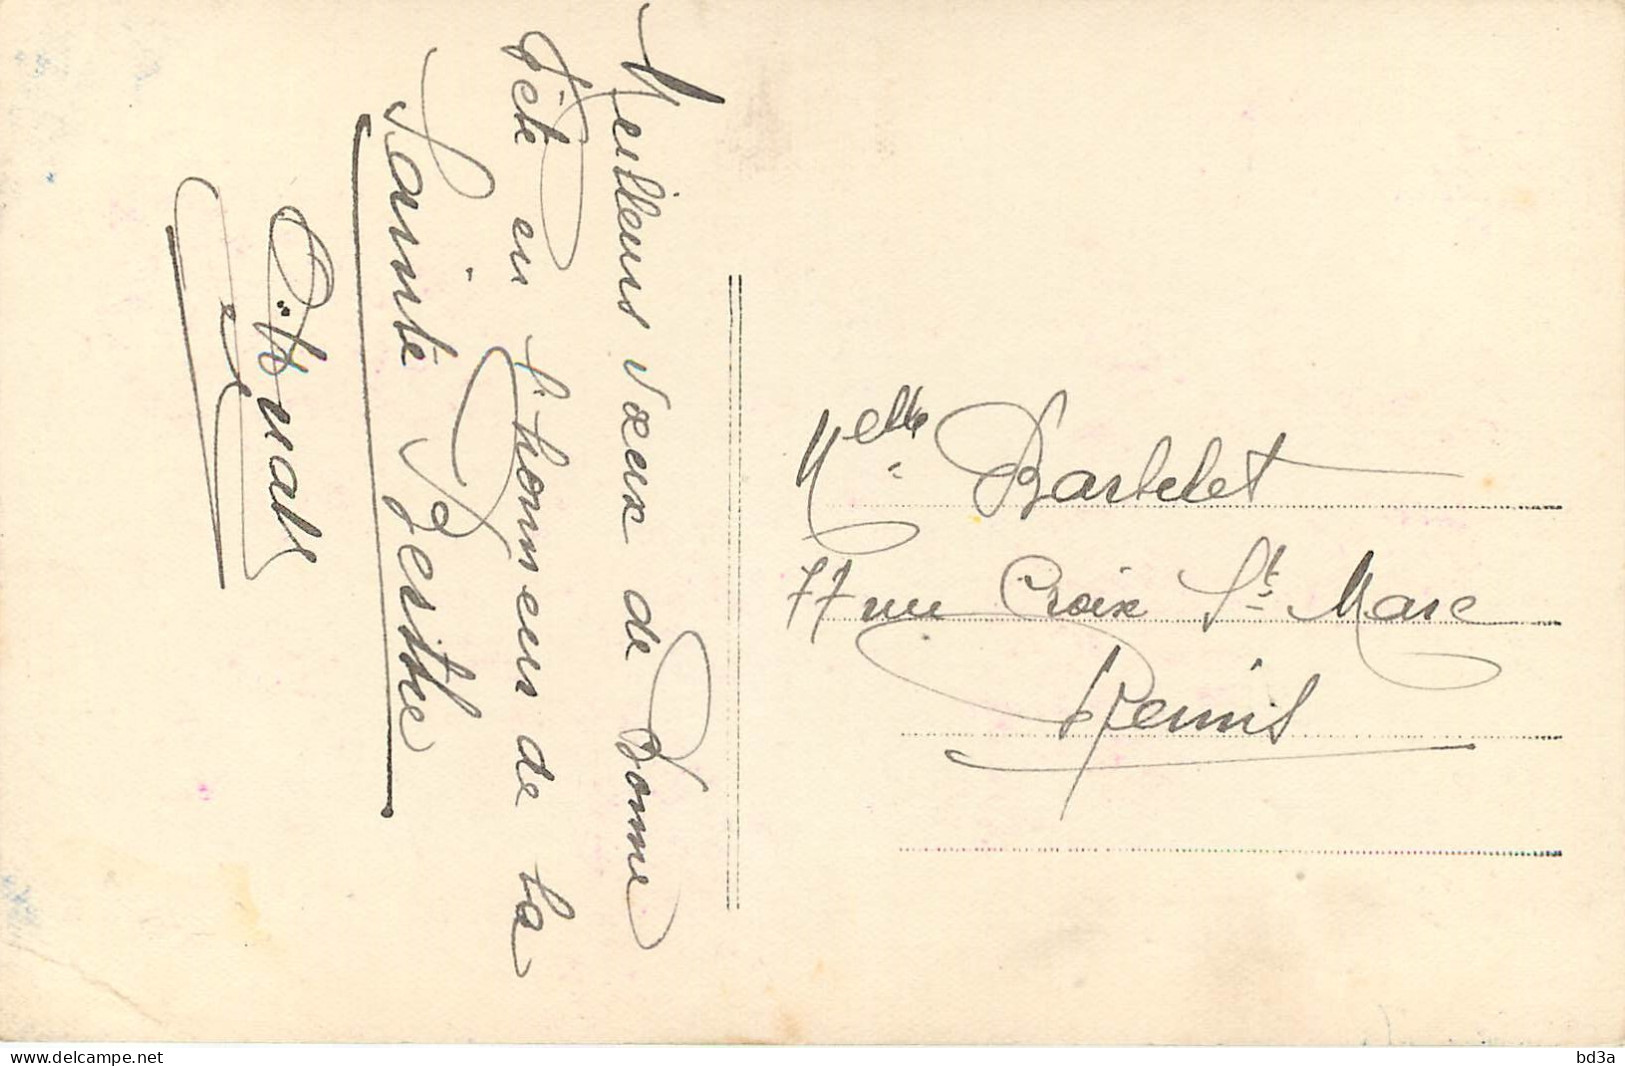 Meilleurs voeux de Bonne
Fête en l'honneur de la
Sainte Berthe
Melle Barbelet
77 rue Croix St Marc
Reims
www.delcampe.net
bd3a